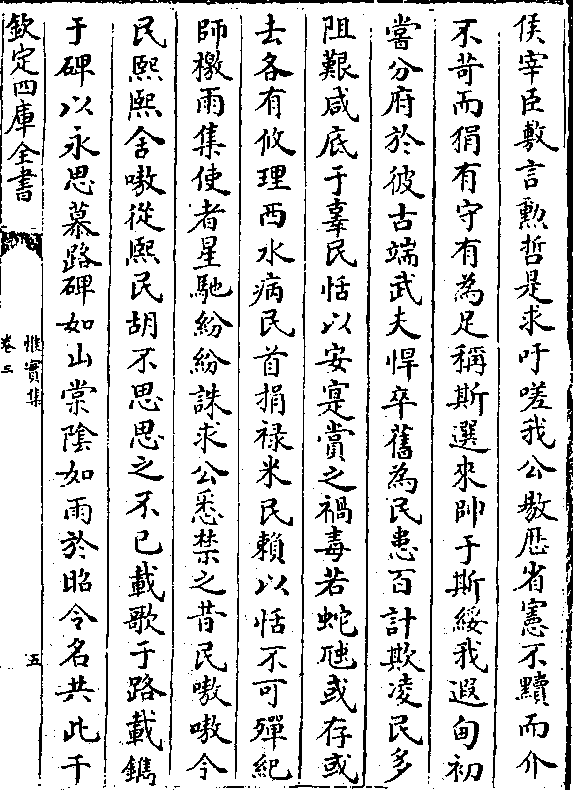 侯宰臣敷言勲哲是求吁嗟我公敭歴省憲不黷而介
不苛而狷有守有為足稱斯選來帥于斯綏我遐甸初
嘗分府於彼古端武夫悍卒舊為民患百計欺凌民多
阻艱咸底于辜民恬以安寔賞之禍毒若蛇虺或存或
去各有攸理西水病民首捐禄米民賴以恬不可殫紀
師檄雨集使者星馳紛紛誅求公悉禁之昔民嗷嗷今
民熙熙舍嗷從熙民胡不思思之不已載歌于路載鐫
于碑以永思慕路碑如山棠陰如雨於昭令名共此千
欽定四庫全書
惟實集
卷三
五